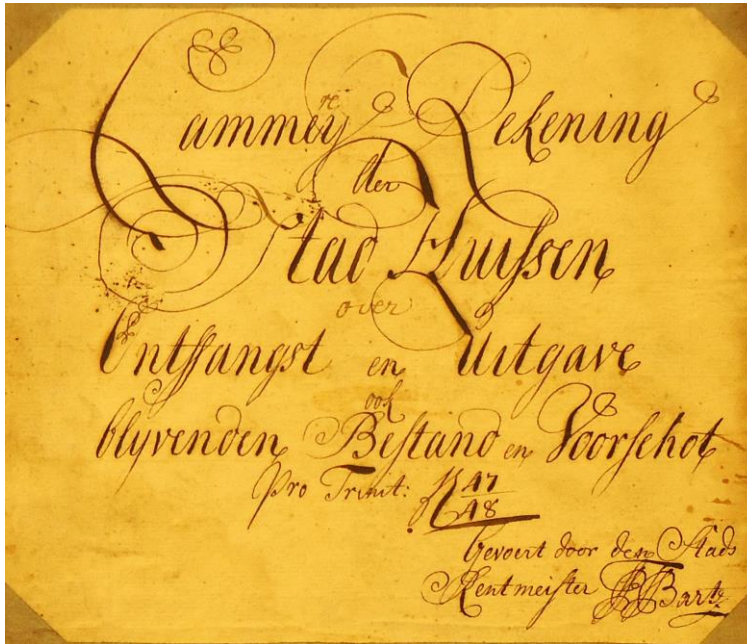 Cammerey Rekening
der
Stad Huissen
over
Ontffangst en Uitgave
ook
blyvenden Bestand en Voorschot
Pro Trinit: 47
48
Gevoert door den Stads
Rentmeister Bartz